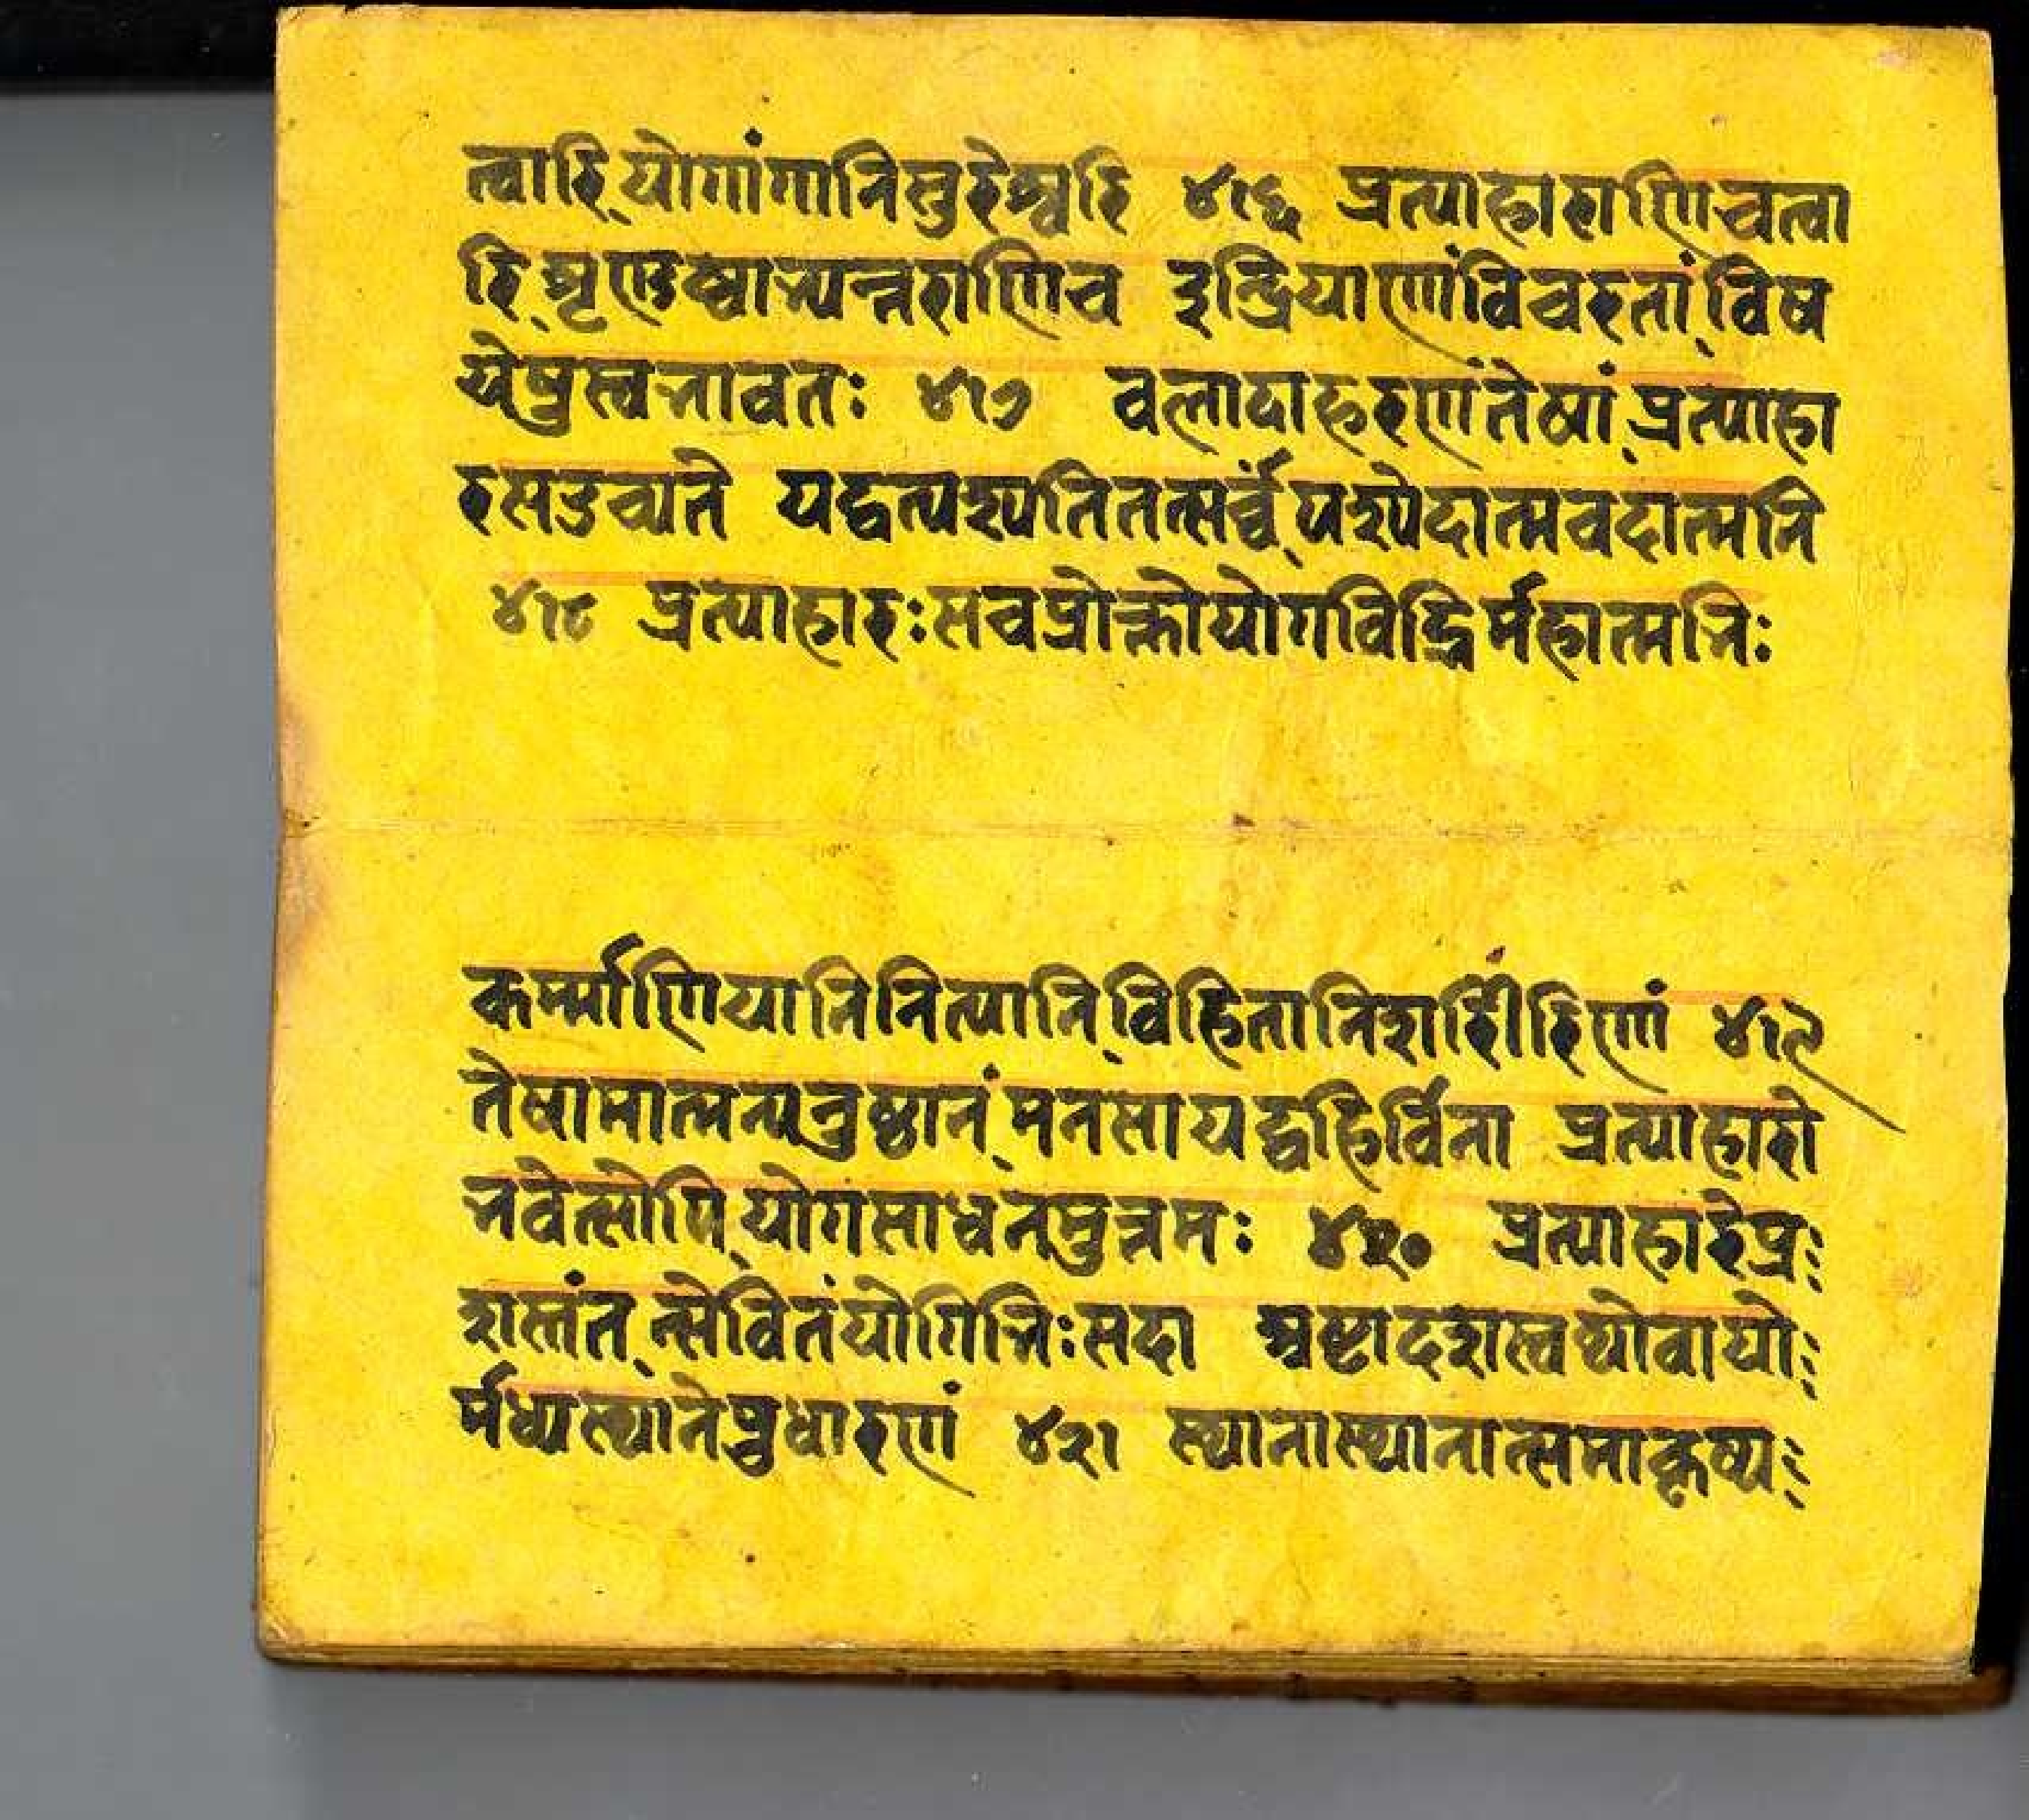 त्वारि योगांगानिसुरेश्वरि ४१६ प्रत्याहाराणिचत्वा
रि शृणुष्वाभ्यन्तराणिच इन्द्रियाणांविचरतां विष
येषुस्वभावतः ४१७ वलादाहरणंतेषां प्रत्याहा
रसउच्यते यद्यत्पश्यतितत्सर्व्वं पश्येदात्मवदात्मनि
४१८ प्रत्याहारःसचप्रोक्तोयोगविद्भिर्महात्मभिः
कर्म्माणियानिनित्यानि विहितानिशरीरिणां ४१९
तेषामात्मन्यनुष्ठानं मनसायद्बहिर्विना प्रत्याहारो
भवेत्सोपि योगसाधनमुत्तमः ४२० प्रत्याहारेप्र
शस्तंत त्सेवितंयोगिभिःसदा अष्टादशस्वथोवायो
र्मध्यस्थानेषुधारणं ४२१ स्थानास्थानात्समाकृष्य